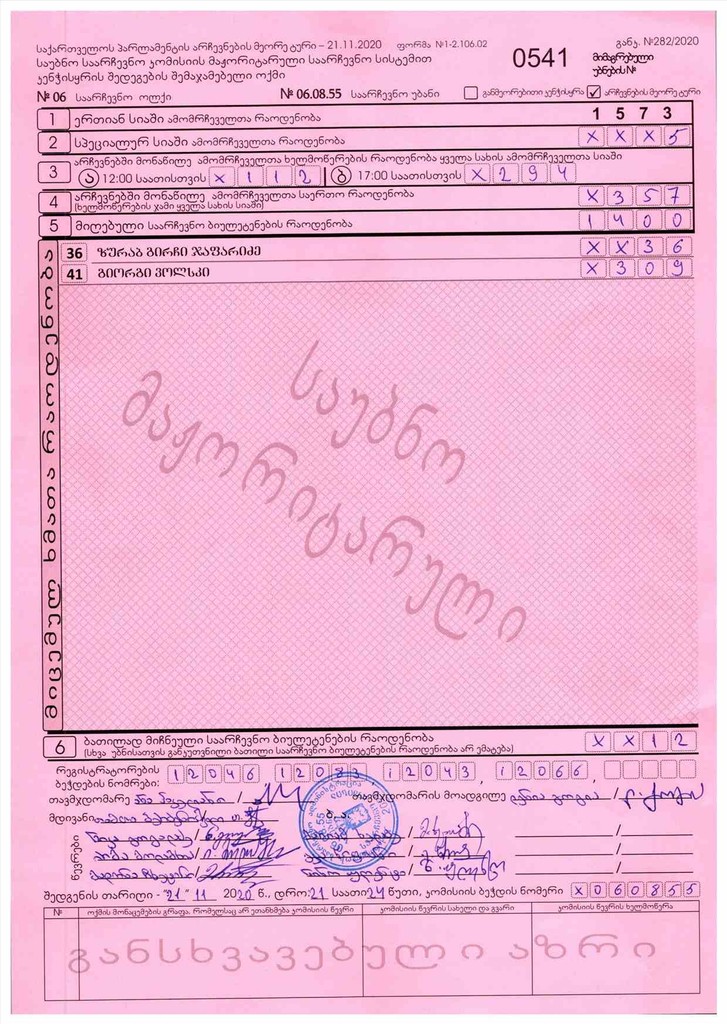 საქართველოს პარლამენტის არჩევნების მეორე ტური – 21.11.2020 ფორმა №1-2.106.02
განკ. №282/2020
საუბნო საარჩევნო კომისიის მაჟორიტარული საარჩევნო სისტემით
კენჭისყრის შედეგების შემაჯამებელი ოქმი
0541
მიმაგრებული
უბნების№
№ 06 საარჩევნო ოლქი № 06.08.55 საარჩევნო უბანი განმეორებითი კენჭისყრა ✓ არჩევნების მეორე ტური
1 ერთიან სიაში ამომრჩეველთა რაოდენობა 1 5 7 3
2 სპეციალურ სიაში ამომრჩეველთა რაოდენობა X X X 5
3 არჩევნებში მონაწილე ამომრჩეველთა ხელმოწერების რაოდენობა ყველა სახის ამომრჩეველთა სიაში
ა 12:00 საათისთვის X 1 1 2 ბ 17:00 საათისთვის X 2 9 4
4 არჩევნებში მონაწილე ამომრჩეველთა საერთო რაოდენობა X 3 5 7
(ხელმოწერების ჯამი ყველა სახის სიაში)
5 მიღებული საარჩევნო ბიულეტენების რაოდენობა 1 4 0 0
მიცემულ ხმათა რაოდენობა
36 ზურაბ გირჩი ჯაფარიძე X X 3 6
41 გიორგი ვოლსკი X 3 0 9
საუბნო
მაჟორიტარული
6 ბათილად მიჩნეული საარჩევნო ბიულეტენების რაოდენობა X X 1 2
(სხვა უბნისათვის განკუთვნილი ბათილი საარჩევნო ბიულეტენების რაოდენობა არ ემატება)
რეგისტრატორების
ბეჭდების ნომრები: 12046 12083 12043, 12066,
თავმჯდომარე / თავმჯდომარის მოადგილე
მდივანი ბ.ა.
წევრები
შედგენის თარიღი - "21" 11 2020 წ., დრო: 21 საათი 24 წუთი, კომისიის ბეჭდის ნომერი X 0 6 0 8 5 5
№ ოქმის მონაცემების გრაფა, რომელსაც არ ეთანხმება კომისიის წევრი კომისიის წევრის სახელი და გვარი კომისიის წევრის ხელმოწერა
განსხვავებული აზრი